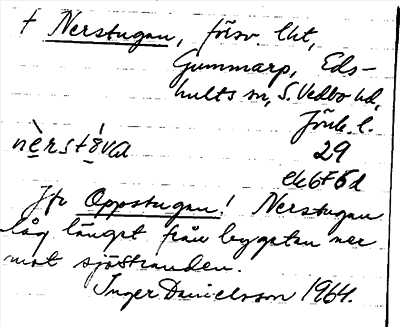 † Nerstugan, försv. lht,
Gummarp, Eds-
hults sn, S. Vedbo hd,
Jönk. l.
nèrstóva 29
ek6f5d
Jfr Oppstugan! Nerstugan
låg längst från bygatan ner
mot sjöstranden.
Inger Danielsson 1964.